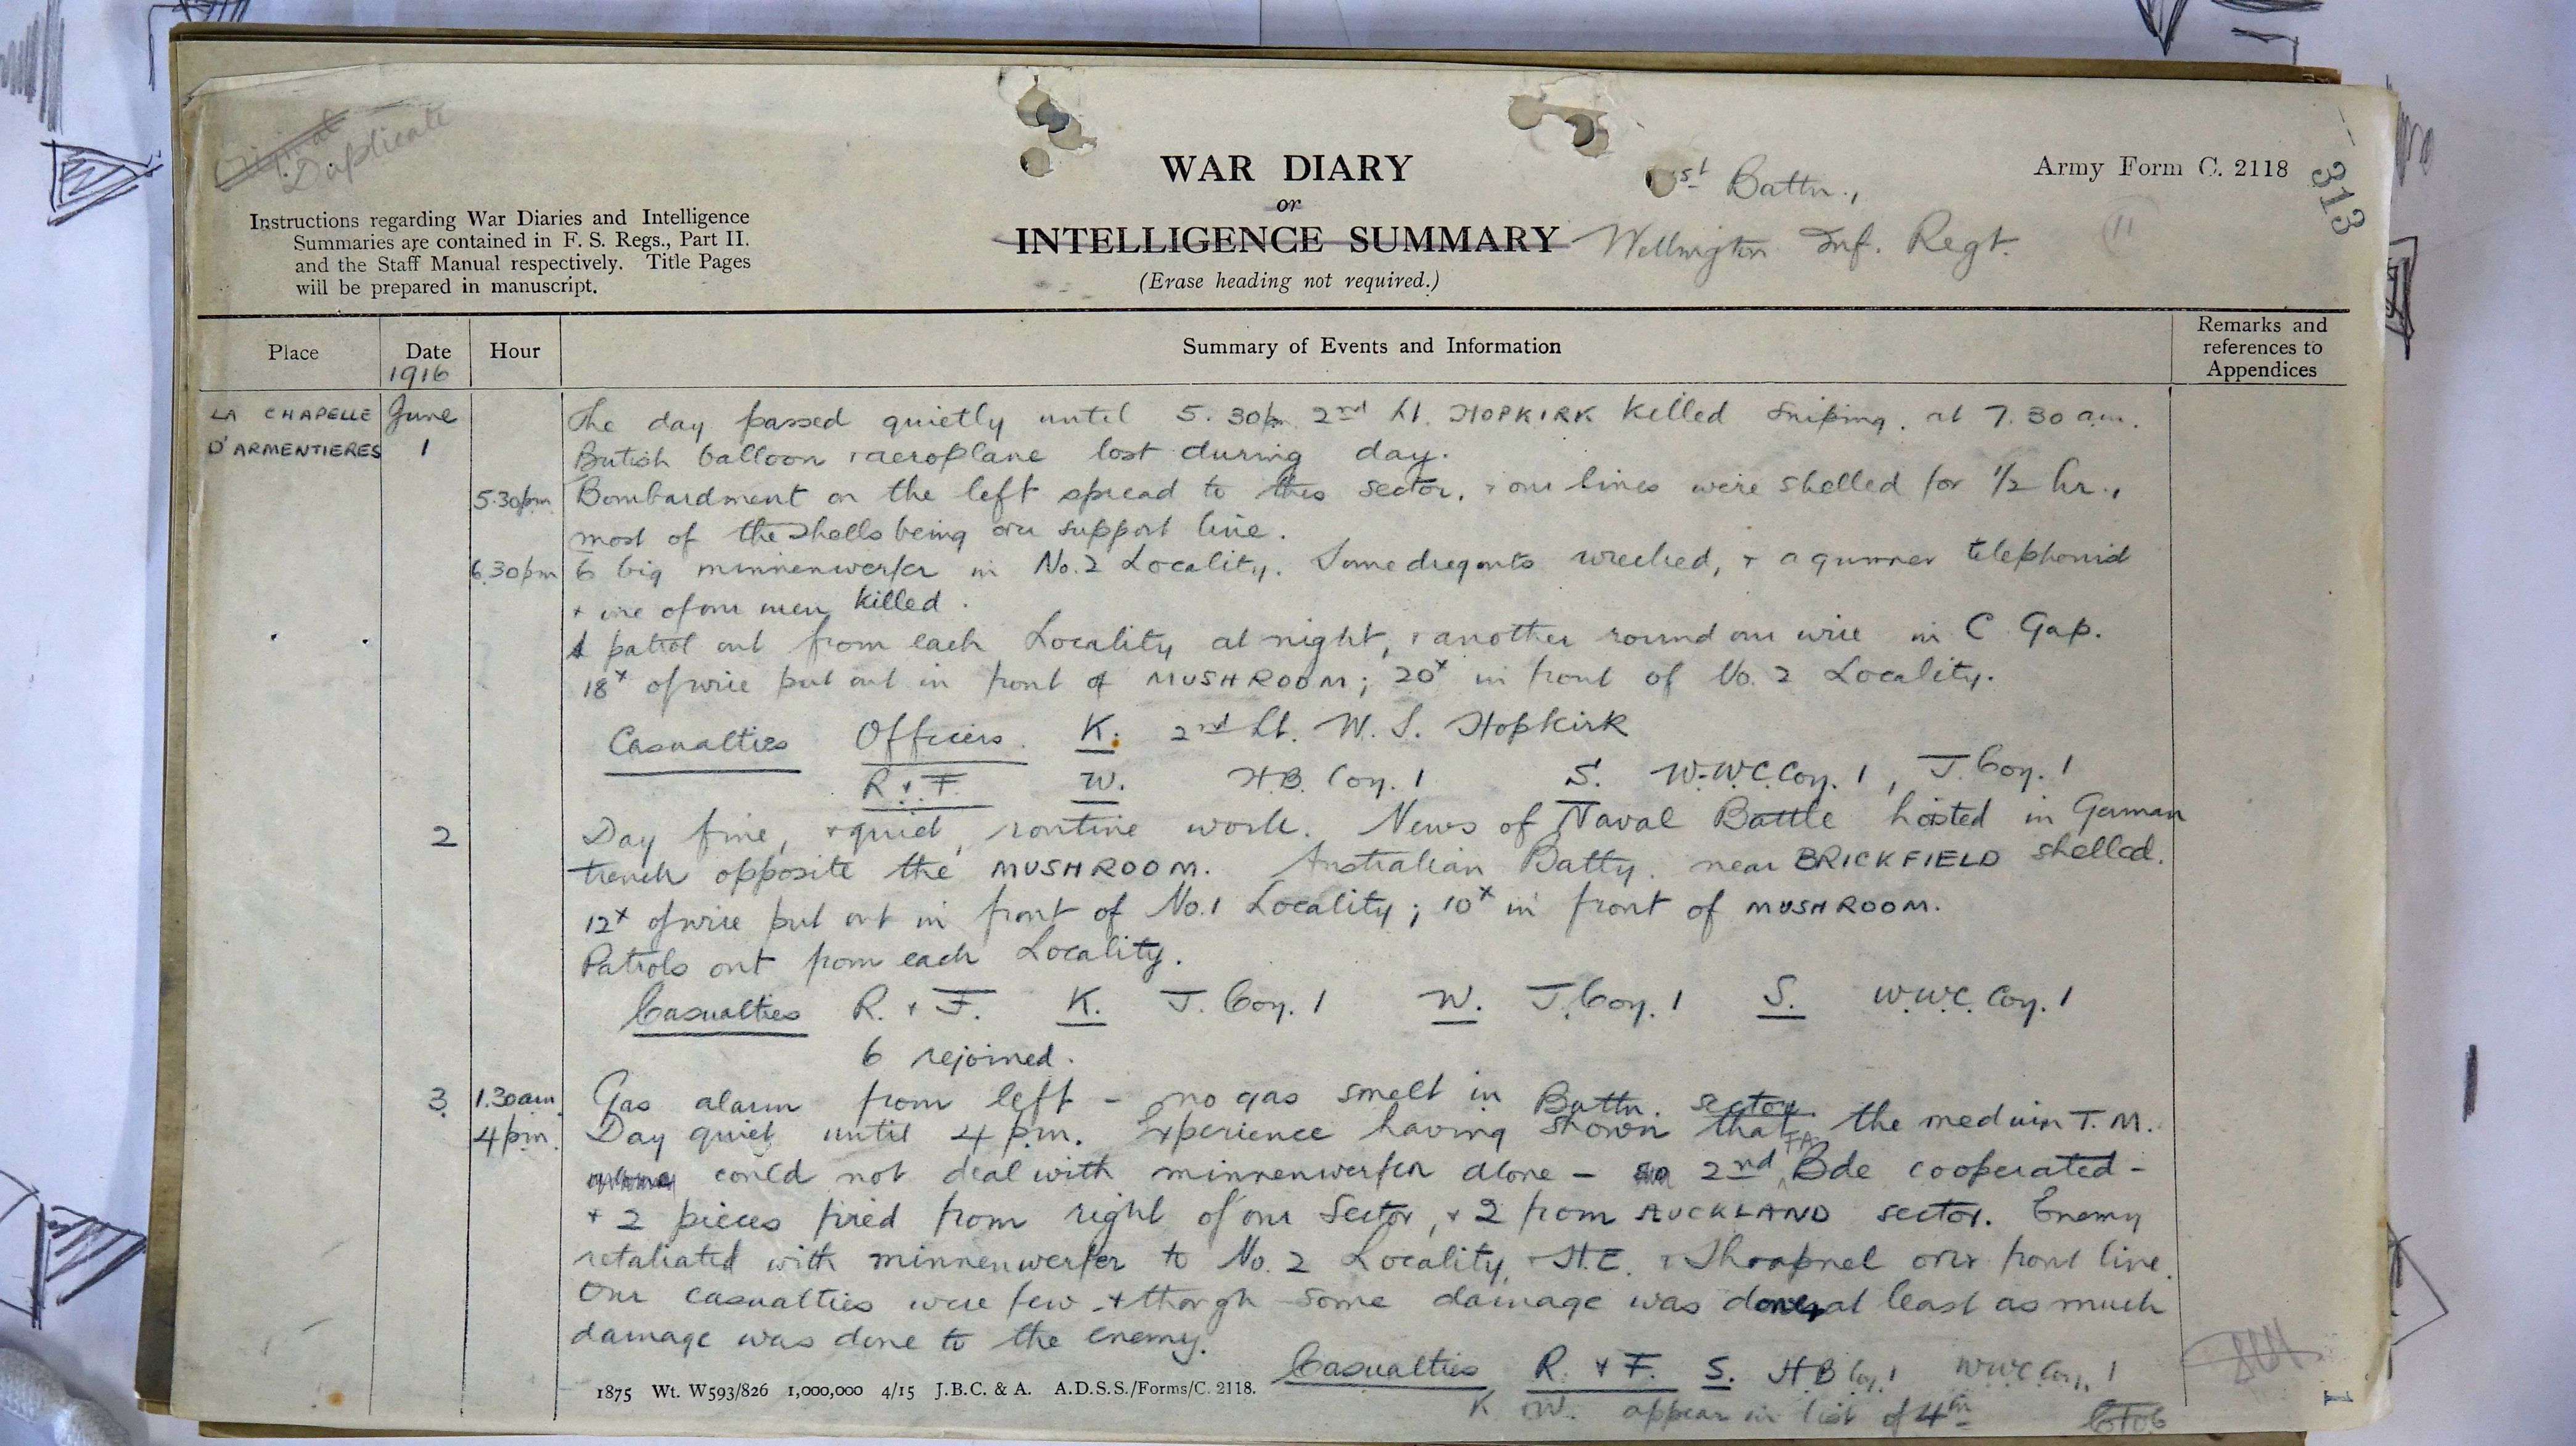 Original
Duplicate
WAR DIARY
or
INTELLIGENCE SUMMARY
(Erase heading not required.)
Instructions regarding War Diaries and Intelligence
Summaries are contained in F. S. Regs., Part II.
and the Staff Manual respectively. Title Pages
will be prepared in manuscript.
1st Battn.,
Wellington Inf. Regt.
Army Form C. 2118
11
313
Place Date Hour Summary of Events and Information Remarks and references to Appendices
1916
LA CHAPELLE June The day passed quietly until 5.30p. 2nd Lt. HOPKIRK killed sniping. at 7.30 a.m.
D'ARMENTIERES 1 British balloon + aeroplane lost during day.
5.30pm Bombardment on the left spread to this sector, + our lines were shelled for 1/2 hr.,
most of the shells being over support line.
6.30pm 6 big minnenwerfer in No. 2 Locality. Some dugouts wrecked, + a gunner telephonist
+ one of our men killed.
A patrol out from each Locality at night, + another round our wire in C Gap.
18x of wire put out in front of MUSHROOM; 20x in front of No. 2 Locality.
Casualties Officers. K. 2nd Lt. W. S. Hopkirk
R + F. W. H.B. Coy. 1 S. W.W.C. Coy. 1, J. Coy. 1
2 Day fine, + quiet, routine work. News of Naval Battle hoisted in German
trench opposite the MUSHROOM. Australian Batty. near BRICKFIELD shelled.
12x of wire put out in front of No.1 Locality; 10x in front of MUSHROOM.
Patrols out from each Locality.
Casualties R. + F. K. J. Coy. 1 W. J. Coy. 1 S. W.W.C. Coy. 1
6 rejoined.
3 1.30am. Gas alarm from left - no gas smelt in Battn. sector.
4pm. Day quiet until 4 p.m. Experience having shown that the medium T.M.
could not deal with minnenwerfer alone - 2nd F.A. Bde cooperated -
+ 2 pieces fired from right of our Sector, + 2 from AUCKLAND sector. Enemy
retaliated with minnenwerfer to No. 2 Locality, + H.E. + Shrapnel over front line.
Our casualties were few + though some damage was done, at least as much
damage was done to the enemy.
Casualties R. + F. S. H B Coy. 1 W.W.C. Coy. 1
K + W. appear in list of 4th
1875 Wt. W593/826 1,000,000 4/15 J.B.C. & A. A.D.S.S./Forms/C. 2118.
1